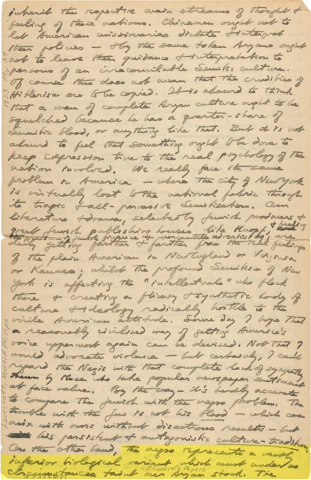 inherit the respective main streams of thought &
feeling of these nations. Chinamen ought not to
let American missionaries dictate & interpret
their policies — & by the same token Aryans ought
not to leave their guidance & interpretation to
persons of an irreconcilable Semitic culture.
Of course this does not mean that the crudities of
Hitlerism are to be copied. It is absurd to think
that a man of complete Aryan culture ought to be
squelched because he has a quarter-share of
Semitic blood, or anything like that. But it is not
absurd to feel that something ought to be done to
keep expression true to the real psychology of the
nation involved. We really face the same
problem in America — where the city of New York
is virtually lost to the national fabric through
its tragic & all-pervasive Semitisation. Our
literature & drama, selected by Jewish producers &
great Jewish publishing houses like Knopf, & feeling
the pressure of Jewish finance & advertising, are
daily getting farther & farther from the real feelings
of the plain American in New England or Virginia
or Kansas; whilst the profound Semitism of New
York is affecting the "intellectuals" who flock
there & creating a flimsy & synthetic body of
culture & ideology radically hostile to the
virile American attitude. Some day I hope that
a reasonably civilised way of getting America's
voice uppermost again can be devised. Not that I
would advocate violence — but certainly, I can't
regard the Nazis with that complete lack of sympathy
shewn by those who take popular newspaper sentiment
at face value. By the way — it's hardly accurate
to compare the Jewish with the negro problem. The
trouble with the Jew is not his blood — which can
mix with ours without disastrous results — but
his persistent & antagonistic culture-tradition.
On the other hand, the negro represents a vastly
inferior biological variant which must under no
circumstances taint our Aryan stock. The